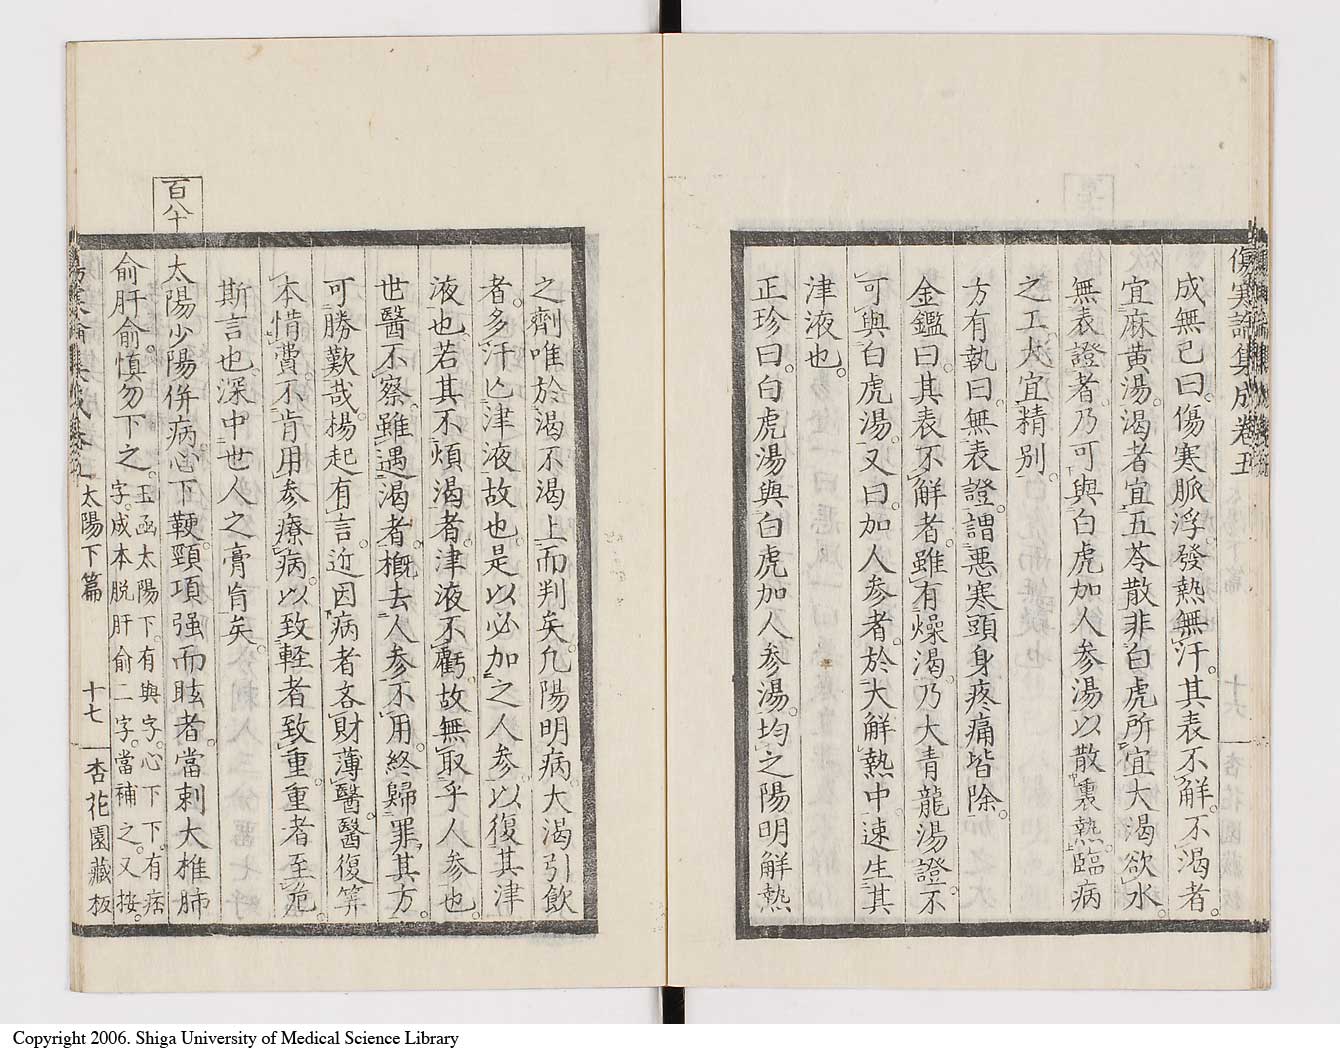 傷寒論集成卷五
十六
成無已曰。傷寒脈浮。發熱無汗。其表不解。不渴者。
宜麻黃湯。渴者宜五苓散。非白虎所宜。大渴欲水。
無表證者。乃可與白虎加人參湯。以散裏熱。臨病
之工。大宜精別。
方有執曰。無表證。謂惡寒頭身疼痛皆除。
金鑑曰。其表不解者。雖有燥渴。乃大青龍湯證。不
可與白虎湯。又曰。加人參者。於大解熱中。速生其
津液也。
正珍曰。白虎湯與白虎加人參湯。均之陽明解熱
之劑。唯於渴不渴上而判矣。凡陽明病。大渴引飲
者。多汗亡津液故也。是以必加之人參。以復其津
液也。若其不煩渴者。津液不虧。故無取乎人參也。
世醫不察。雖遇渴者。概去人參不用。終歸罪其方。
可勝歎哉。楊起有言。近因病者吝財薄醫。醫復筭
本惜費。不肯用參療病。以致輕者致重。重者至危。
斯言也。深中世人之膏肓矣。
百八十
太陽少陽併病。心下鞕。頸項强而眩者。當刺大椎肺
俞肝俞。愼勿下之。玉函太陽下。有與字。心下下。有痞
字。成本脫肝俞二字。當補之。又按。
太陽下篇 十七 杏花園藏板
Copyright 2006. Shiga University of Medical Science Library